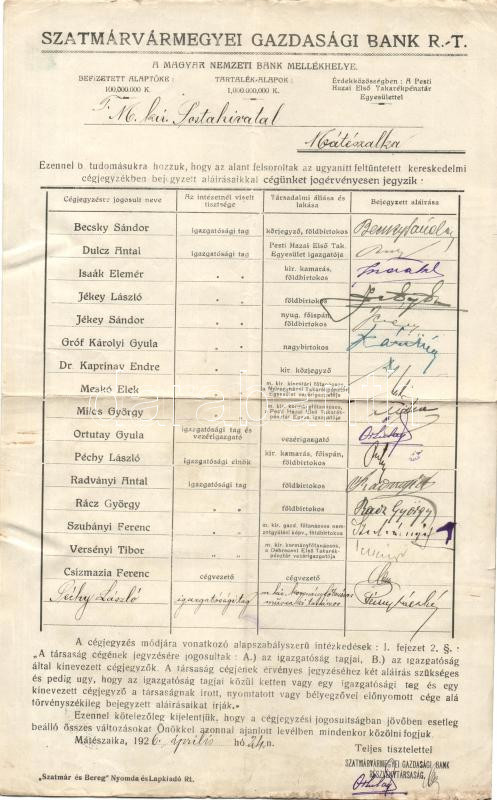 SZATMÁRVÁRMEGYEI GAZDASÁGI BANK R.-T.
A MAGYAR NEMZETI BANK MELLÉKHELYE.
BEFIZETETT ALAPTŐKE: TARTALÉK-ALAPOK: Érdekközösségben: A Pesti
100,000.000 K. 1,000,000.000 K. Hazai Első Takarékpénztár
Egyesülettel
Postahivatal
Mátészalka
Ezennel b. tudomásukra hozzuk, hogy az alant felsoroltak az ugyanitt feltüntetett kereskedelmi
cégjegyzékben bejegyzett aláírásaikkal cégünket jogérvényesen jegyzik:
Cégjegyzésre jogosult neve Az intézetnél viselt tisztsége Társadalmi állása és lakása Bejegyzett aláírása
Becsky Sándor igazgatósági tag körjegyző, földbirtokos
Dulcz Antal igazgatósági tag Pesti Hazai Első Tak. Egyesület igazgatója
Isaák Elemér " " kir. kamarás, földbirtokos
Jékey László " " földbirtokos
Jékey Sándor " " nyug. főispán, földbirtokos
Gróf Károlyi Gyula " " nagybirtokos
Dr. Kaprinay Endre " " kir. közjegyző
Meskó Elek " "
Milcs György " "
Ortutay Gyula igazgatósági tag és vezérigazgató vezérigazgató
Péchy László igazgatósági elnök kir. kamarás, főispán, földbirtokos
Radványi Antal igazgatósági tag földbirtokos
Rácz György " " földbirtokos Rácz György
Szuhányi Ferenc " "
Versényi Tibor " " m. kir. kormányfőtanácsos, a Debreceni Első Takarékpénztár vezérigazgatója
Csizmazia Ferenc cégvezető cégvezető
Péchy László igazgatósági tag
A cégjegyzés módjára vonatkozó alapszabályszerü intézkedések: I. fejezet 2. §.:
„A társaság cégének jegyzésére jogosultak: A.) az igazgatóság tagjai, B.) az igazgatóság
által kinevezett cégjegyzők. A társaság cégének érvényes jegyzéséhez két aláírás szükséges
és pedig ugy, hogy az igazgatóság tagjai közül ketten vagy egy igazgatósági tag és egy
kinevezett cégjegyző a társaságnak irott, nyomtatott vagy bélyegzővel előnyomott cége alá
törvényszékileg bejegyzett aláírásaikat irják."
Ezennel kötelezőleg kijelentjük, hogy a cégjegyzési jogosultságban jövőben esetleg
beálló összes változásokat Önökkel azonnal ajánlott levélben mindenkor közölni fogjuk.
Mátészalka, 1926. április hó 24.n.
Teljes tisztelettel
SZATMÁRVÁRMEGYEI GAZDASÁGI BANK
RÉSZVÉNYTÁRSASÁG
„Szatmár és Bereg" Nyomda és Lapkiadó Rt.